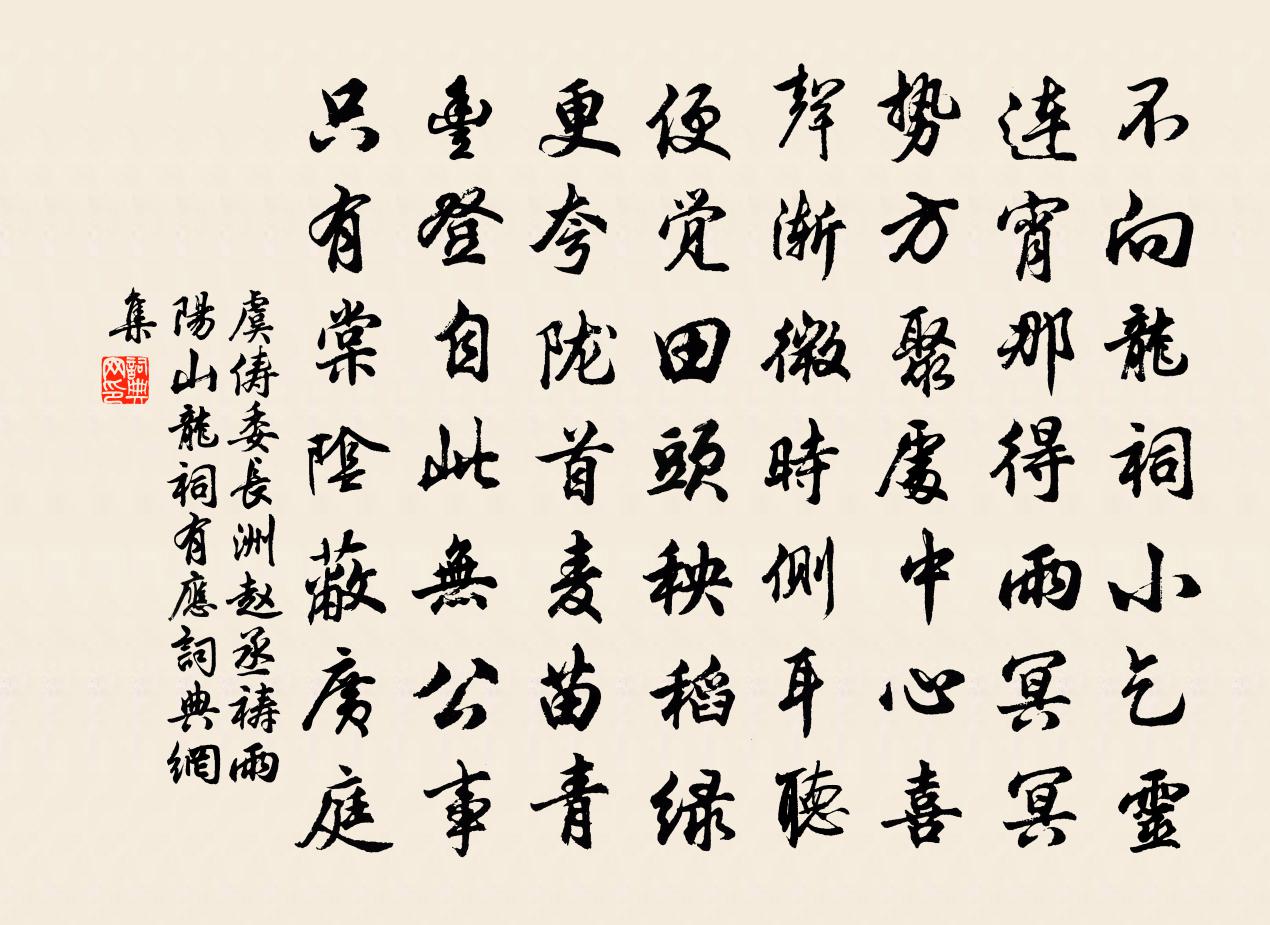 不向龍祠小乞靈
連宵那得雨冥冥
勢方聚處中心喜
聲漸微時側耳聽
便覺田頭秧稻绿
更夸陇首麦苗青
豊登自此無公事
只有棠陰蔽廣庭
虞俦委長洲赵丞禱雨
陽山龍祠有應詞典網
集
詞典
网印